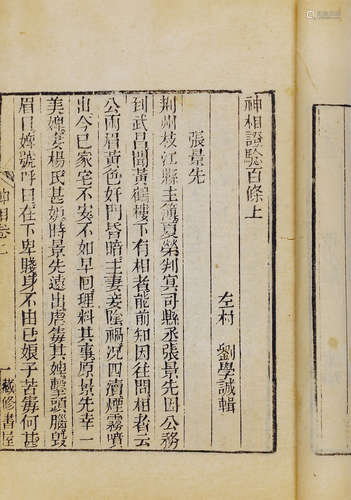 神相證驗百條上
左村 劉學誠輯
張景先
荆州枝江縣主簿夏榮判冥司縣丞張景先因公務
到武昌聞黃鶴樓下有相者能前知因往問相者云
公兩眉黃色奸門昏暗主妻妾陰禍況四瀆煙霧噴
出今已家宅不安不如早回理料其事原景先幸一
美婢妾楊氏甚妬時景先遠出虐毒其婢擊頭腦毁
眉目婢號呼曰在下卑賤身不由已娘子苦毒何甚
神相卷
藏修書屋